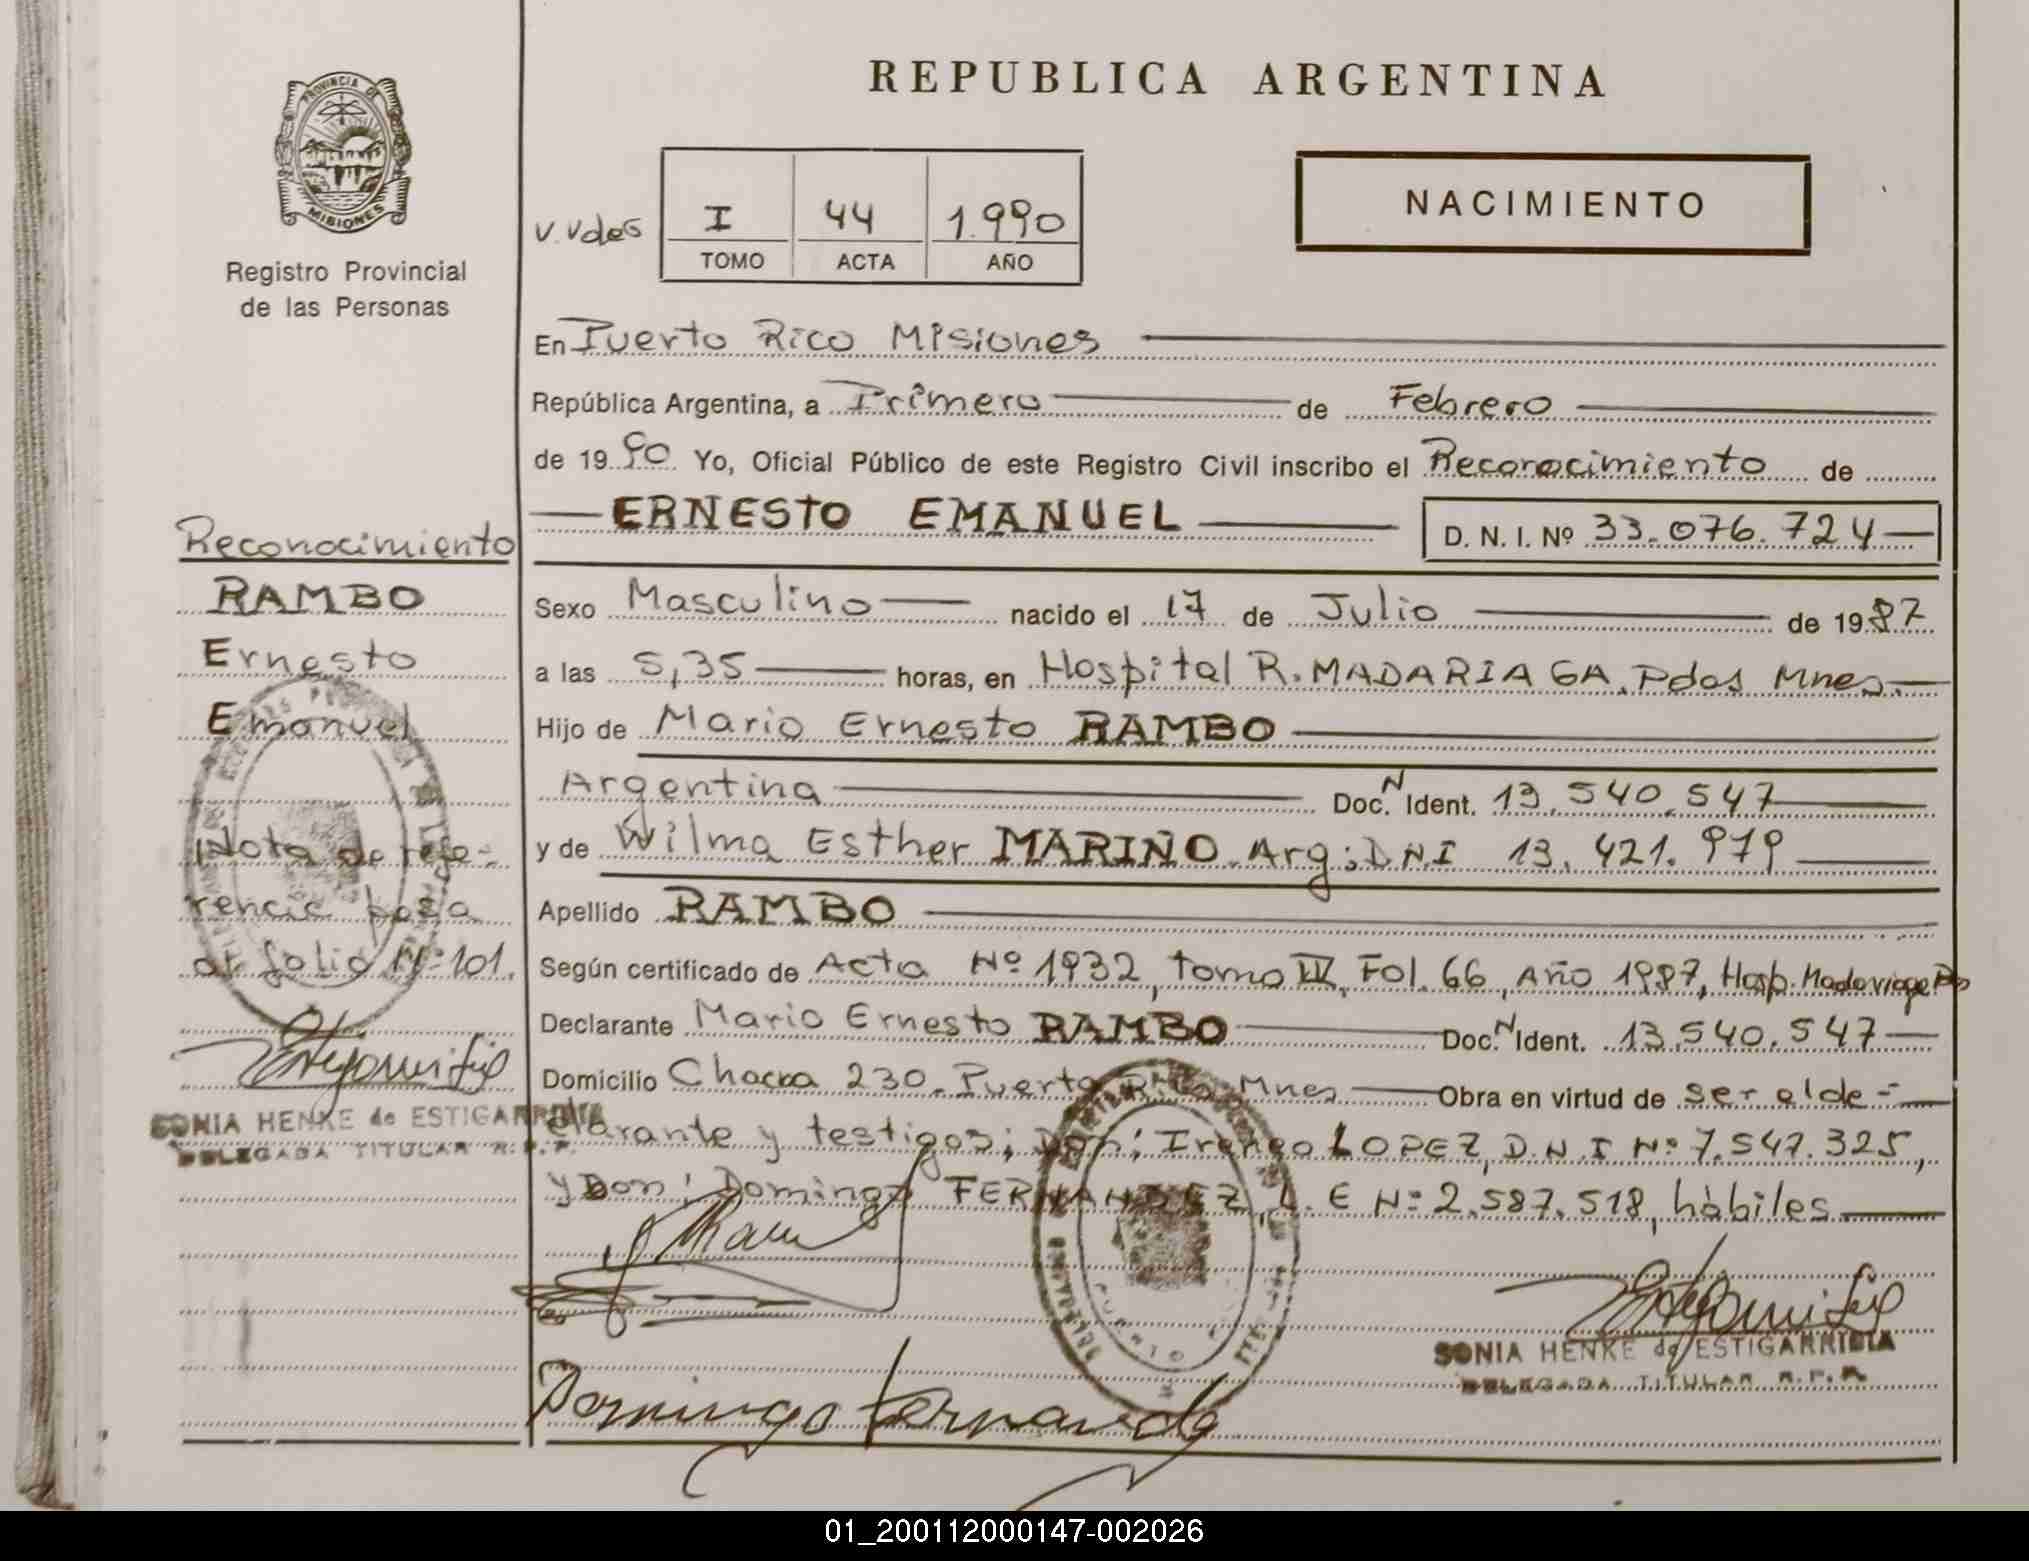 REPUBLICA ARGENTINA
PROVINCIA DE
MISIONES
Registro Provincial
de las Personas
NACIMIENTO
V. Vdes
I 44 1.990
TOMO ACTA AÑO
En Puerto Rico Misiones
República Argentina, a Primero de Febrero
de 1990 Yo, Oficial Público de este Registro Civil inscribo el Reconocimiento de
ERNESTO EMANUEL D. N. I. Nº 33.076.724
Sexo Masculino nacido el 17 de Julio de 1987
a las 5,35 horas, en Hospital R. MADARIAGA. Pdas Mnes.
Hijo de Mario Ernesto RAMBO
Argentina Doc. N Ident. 13.540.547
y de Wilma Esther MARIÑO. Arg: D.N.I 13.421.979
Apellido RAMBO
Según certificado de Acta Nº 1932, tomo IV, Fol. 66, Año 1987, Hosp. Madariaga
Declarante Mario Ernesto RAMBO Doc. N Ident. 13.540.547
Domicilio Chacra 230. Puerto Rico Mnes Obra en virtud de ser el de-
clarante y testigos; Don: Ireneo LOPEZ, D.N.I Nº 7.547.325,
y Don: Domingo FERNANDEZ, L.E Nº 2.587.518, hàbiles
Domingo Fernandez
SONIA HENKE de ESTIGARRIBIA
DELEGADA TITULAR R.P.P.
Reconocimiento
RAMBO
Ernesto
Emanuel
Nota de refe-
rencia pasa
al folio Nº 101.
SONIA HENKE de ESTIGARRIBIA
DELEGADA TITULAR R.P.P.
01_200112000147-002026